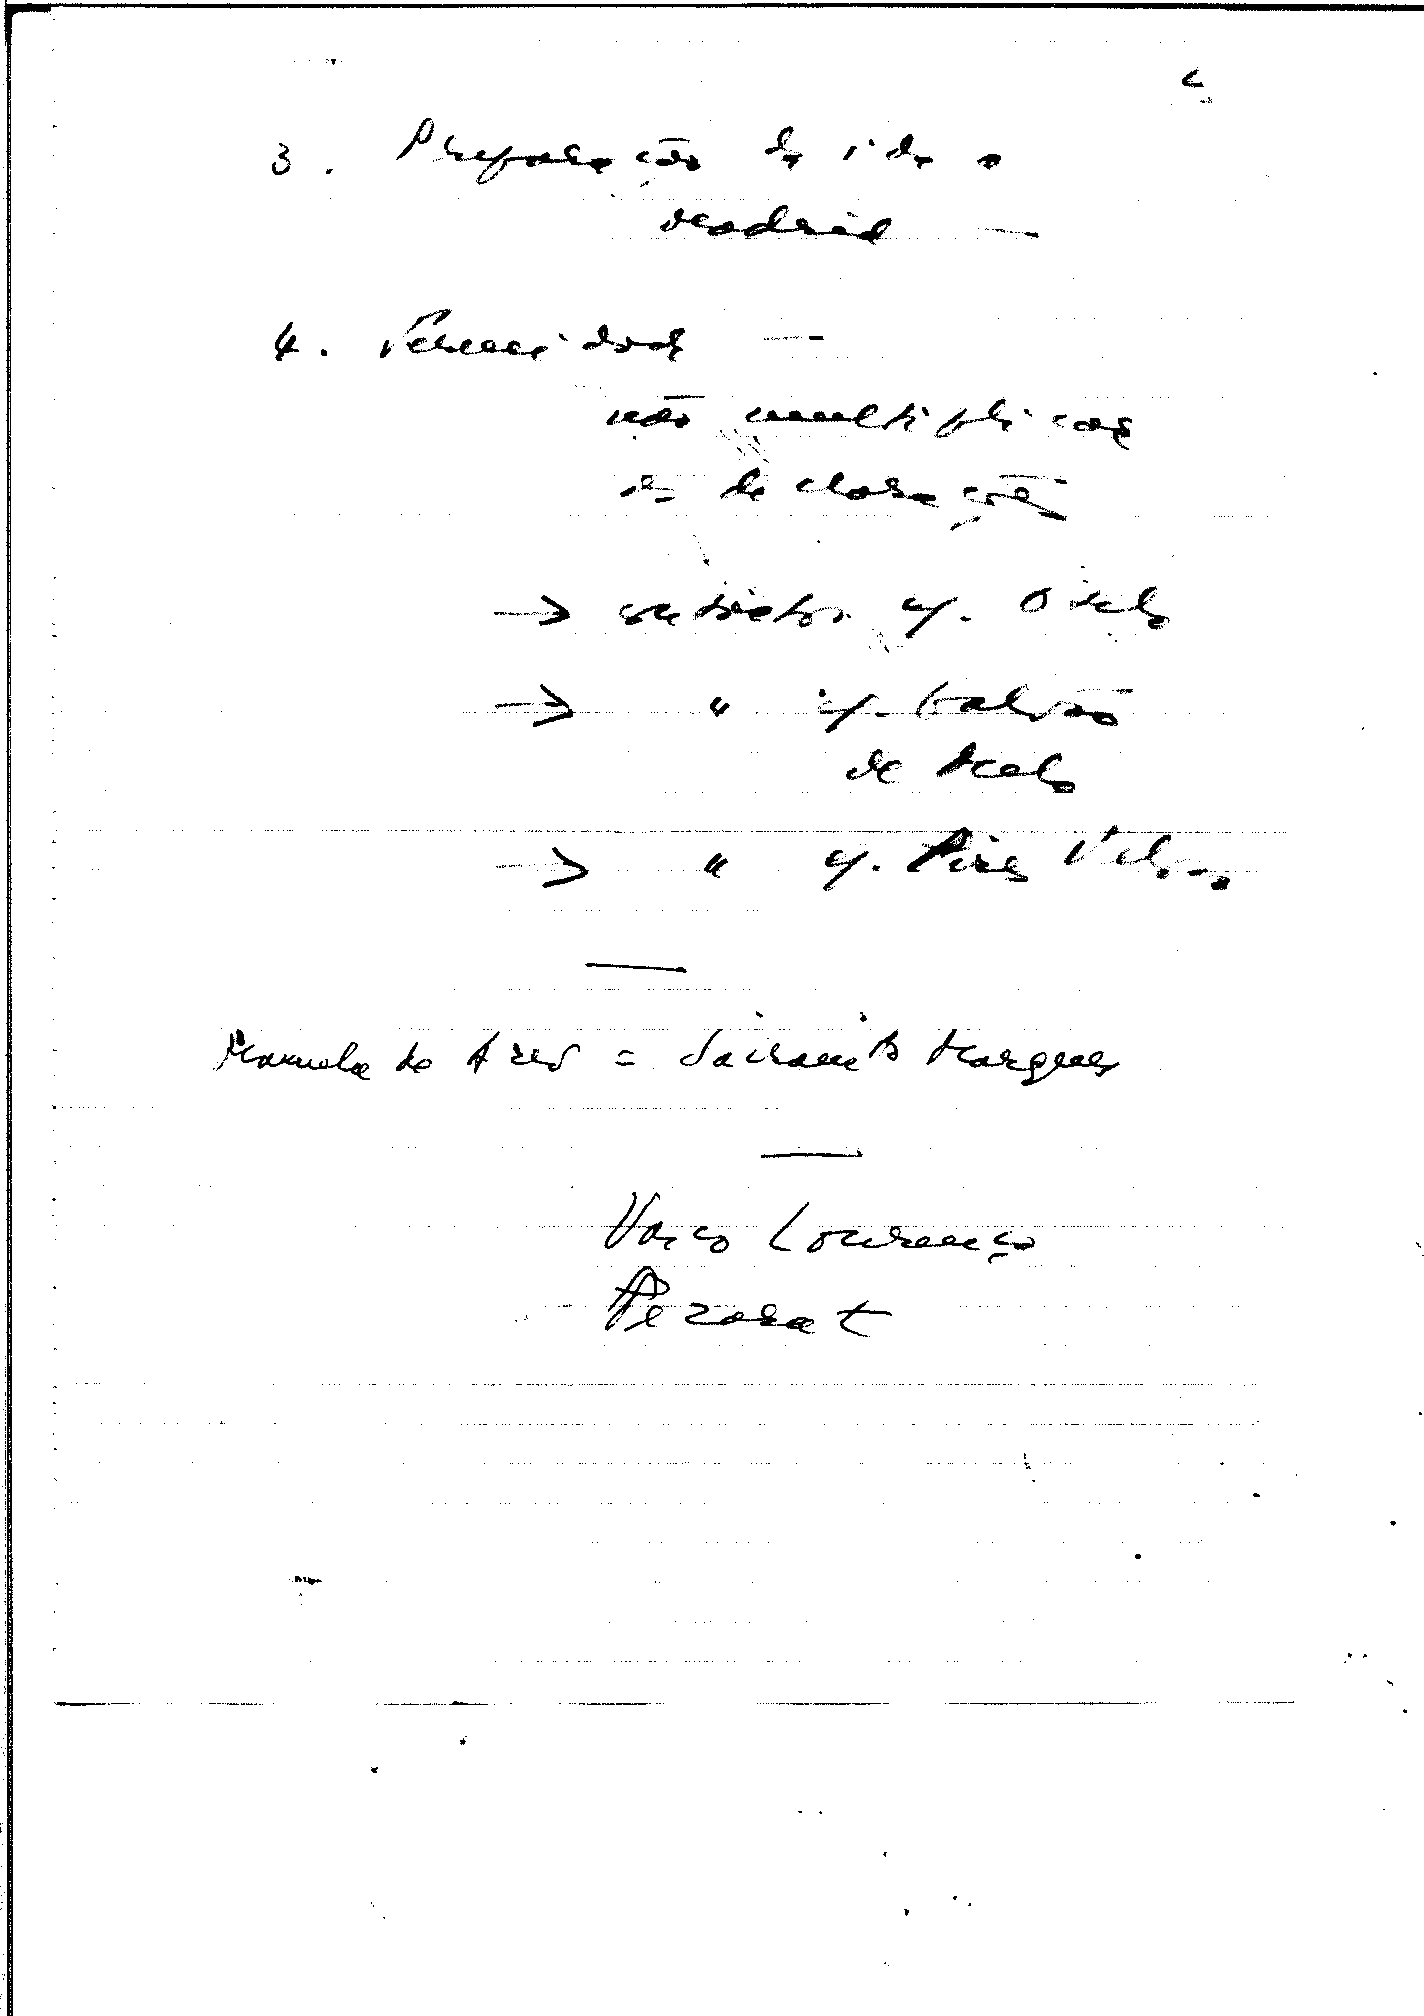 3. Preparação da ida a
Madrid —
4. —
não multiplicar
as declarações
→ contactos c/. Otelo
→ " c/. Galvão
de Melo
→ " c/. Pires Veloso
Manuela de Azev = Sacramento Marques
Vasco Lourenço
Pezarat